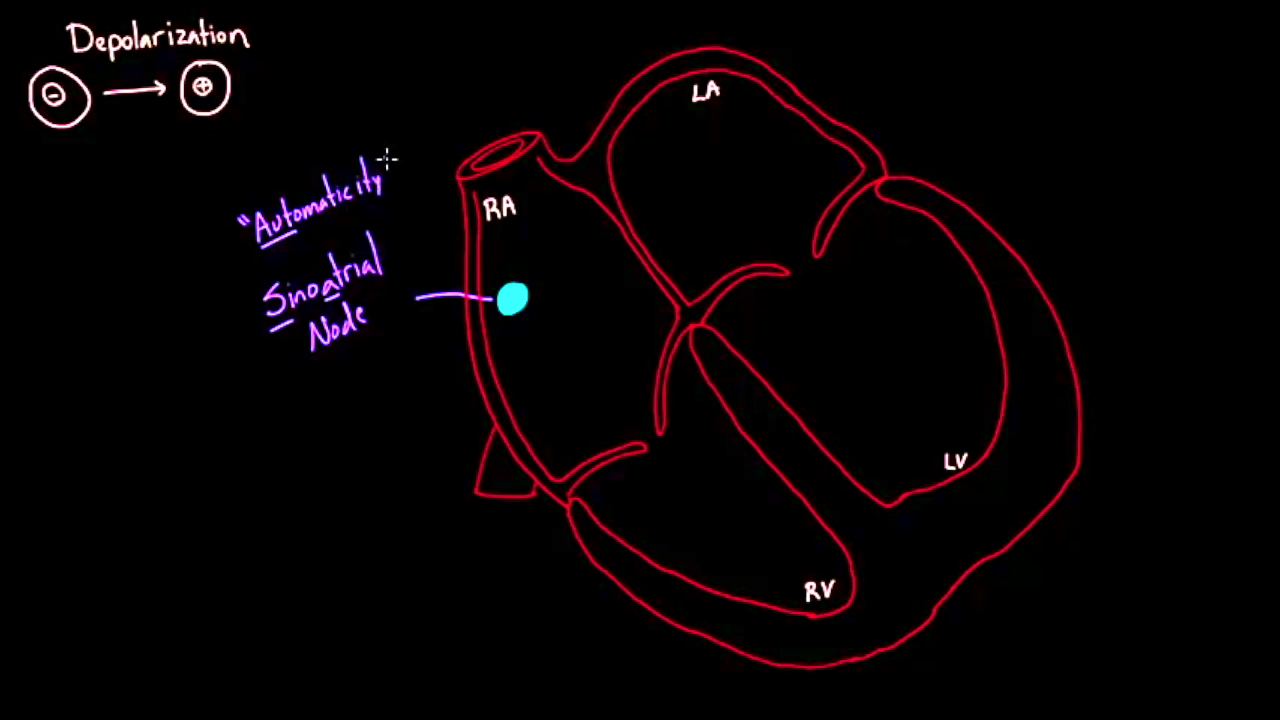 Depolarization
- → +
"Automaticity
Sinoatrial
Node
LA
RA
LV
RV